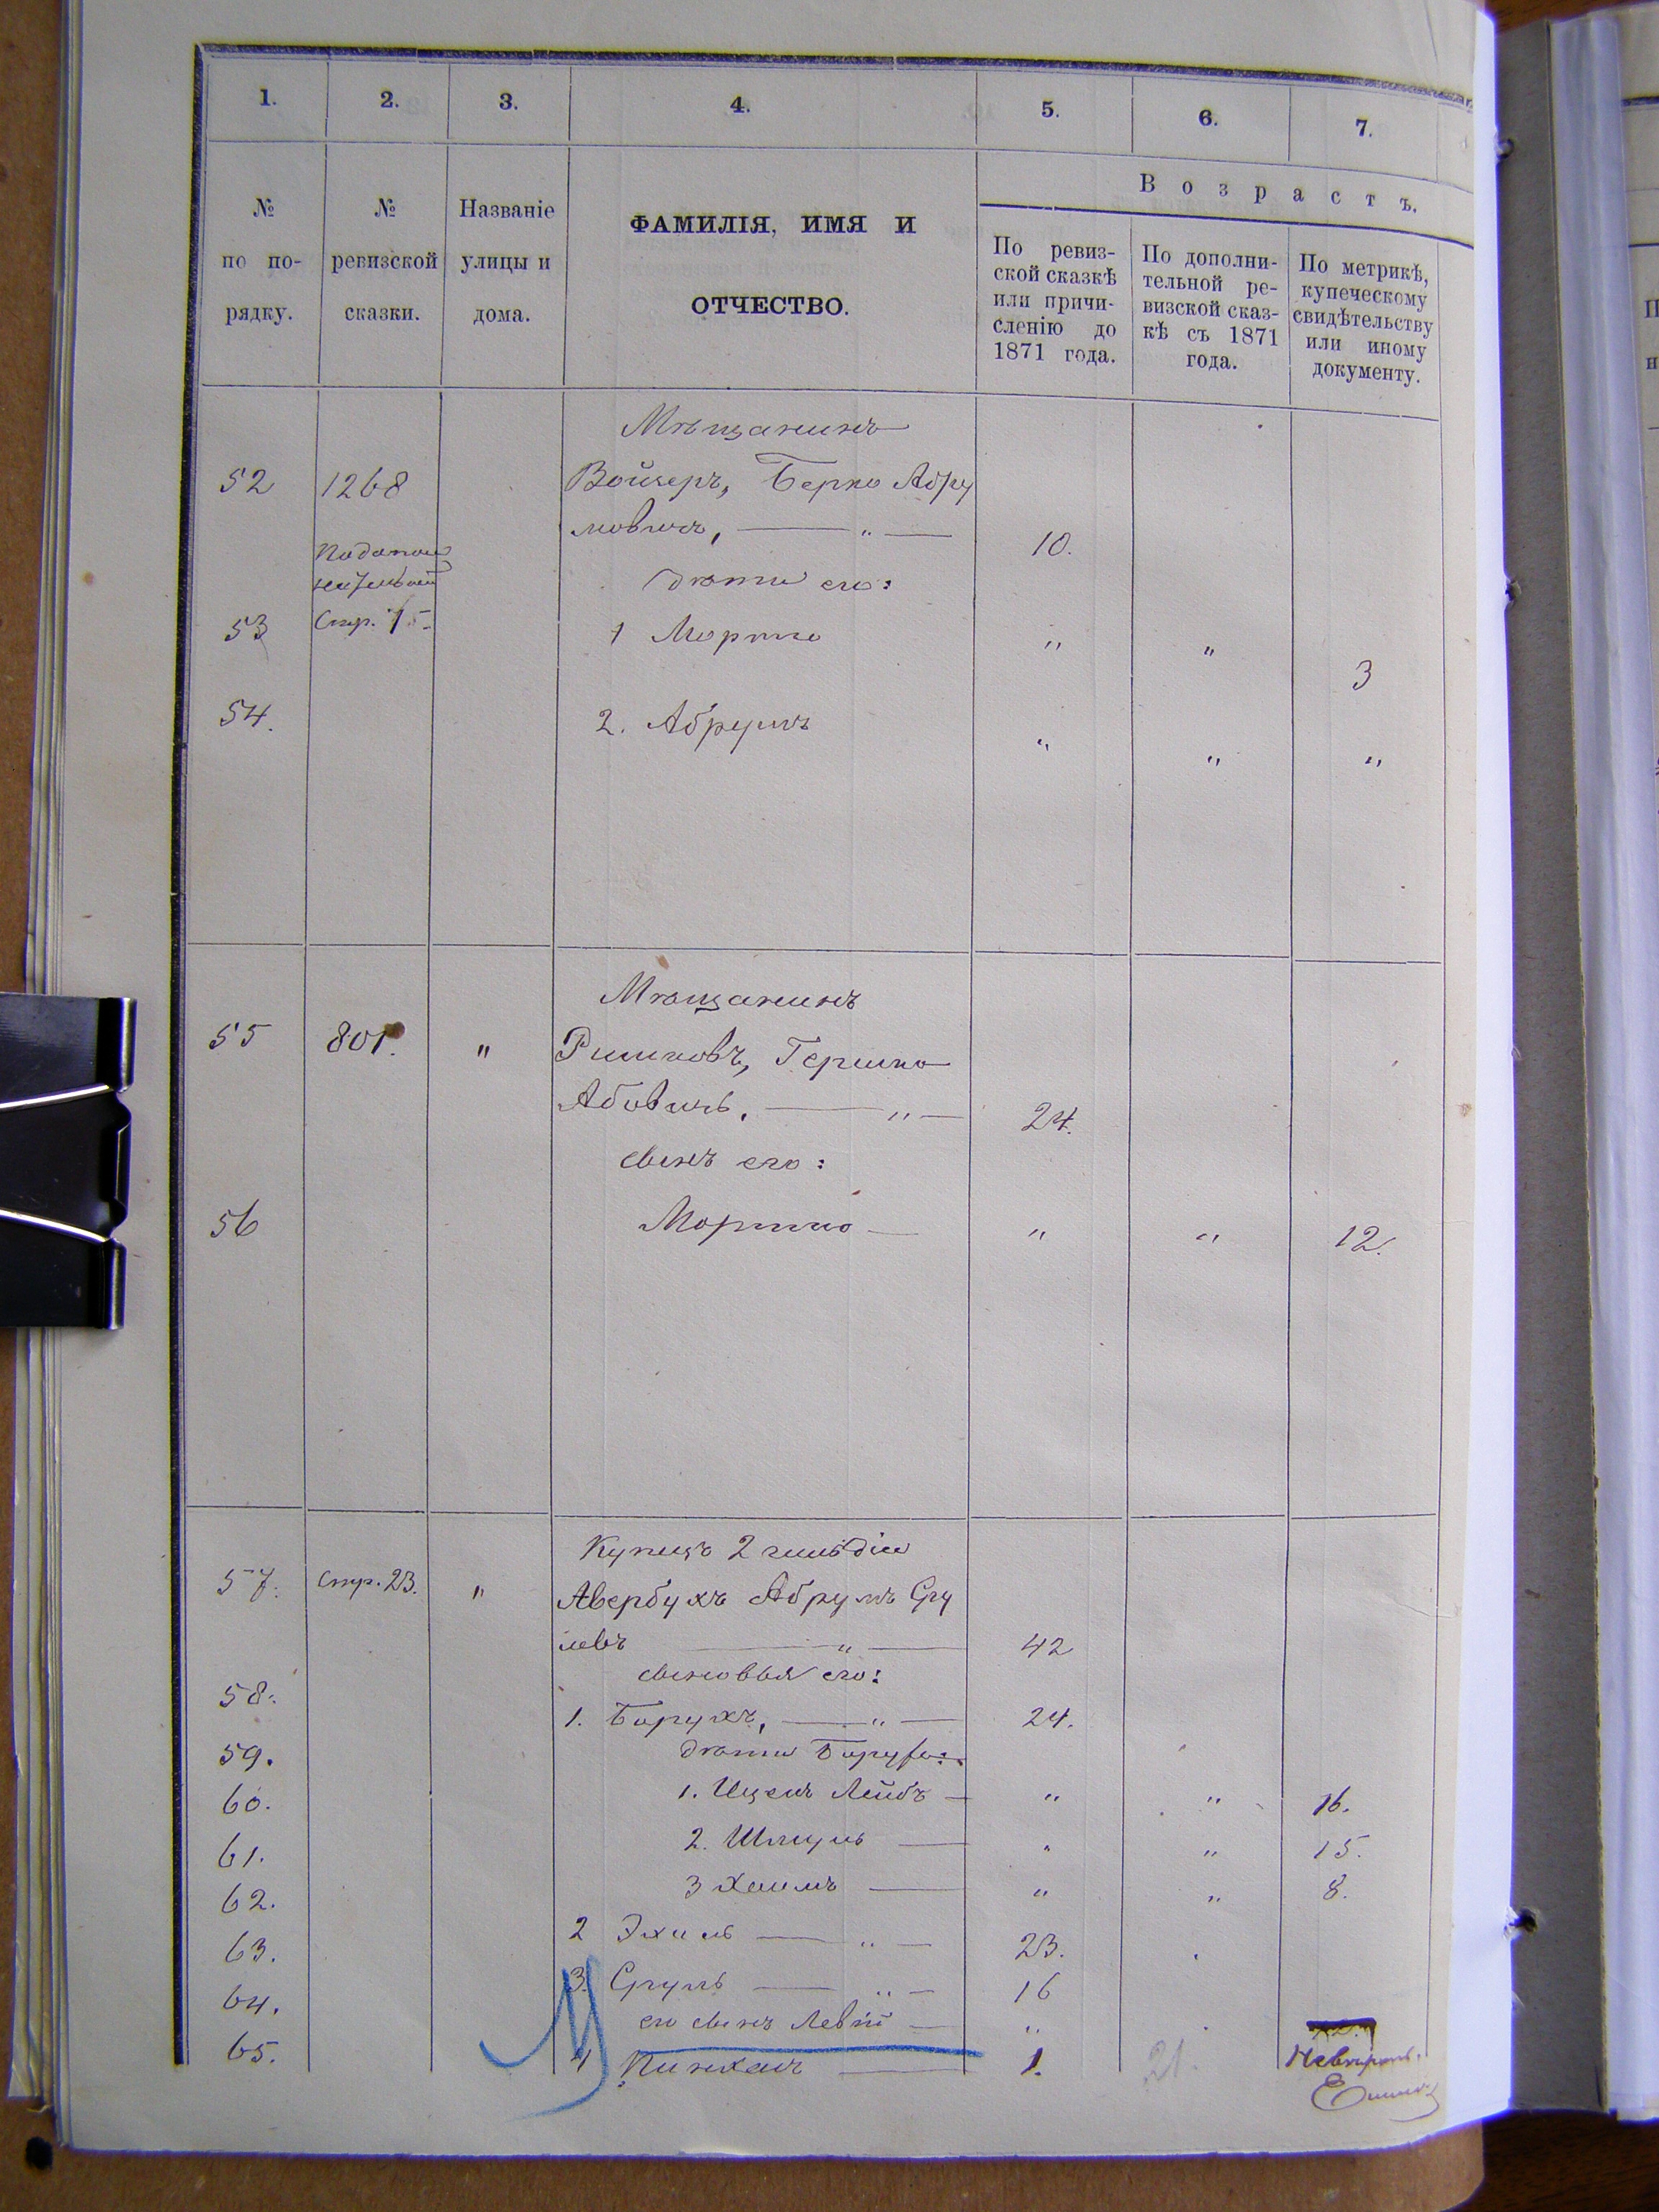 1. 2. 3. 4. 5. 6. 7.
Возрастъ.
№ по порядку.
№ ревизской сказки.
Названіе улицы и дома.
ФАМИЛІЯ, ИМЯ И ОТЧЕСТВО.
По ревиз-
ской сказкѣ
или причи-
сленію до
1871 года.
По дополни-
тельной ре-
визской сказ-
кѣ съ 1871
года.
По метрикѣ,
купеческому
свидѣтельству
или иному
документу.
Мѣщанинъ
52 1268 Войнеръ, Берко Абру
мовичъ, — " — 10.
дѣти его:
53 Стр. 1 Мортко " " 3
54. 2. Абрумъ " " "
Мѣщанинъ
55 801. " Гершко
Абовичъ, — " — 24.
сынъ его:
56 Мортко — " " 12.
Купецъ 2 гильдіи
57. Стр. 23. " Авербухъ Абрумъ Сру
левъ — " — 42
сыновья его:
58. 1. Борухъ, — " — 24.
59. дѣти Боруха:
60. 1. Ицекъ Лейбъ — " " 16.
61. 2. Шмуль — " " 15.
62. 3 Хаимъ — " " 8.
63. 2 Эхиль — " — 23.
64. 3. Сруль — " — 16
его сынъ Левій — "
65. 4 Пинхасъ — 1. 21.